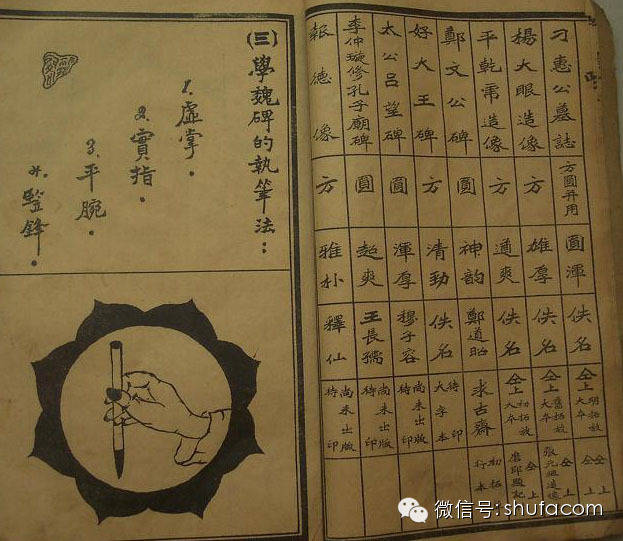 刁惠公墓誌 方圓并用 圓渾 佚名 仝上 明拓放大本 仝上 仝上
楊大眼造像 方 雄厚 佚名 仝上 舊拓放大本 仝上
平乾虎造像 方 遒爽 佚名 仝上 初拓放大本
鄭文公碑 圓 神韵 鄭道昭 求古齋 初拓
好大王碑 方 清勁 佚名 大字本 待印
太公呂望碑 圓 渾厚 穆子容 尚未出版 待印
李仲璇修孔子廟碑 圓 超爽 王長孺 尚未出版 待印
報德像 方 雅朴 釋仙 尚未出版 待印
(三)學魏碑的執筆法：
1.虛掌.
2.實指.
3.平腕.
4.豎鋒.
微信号: shufacom